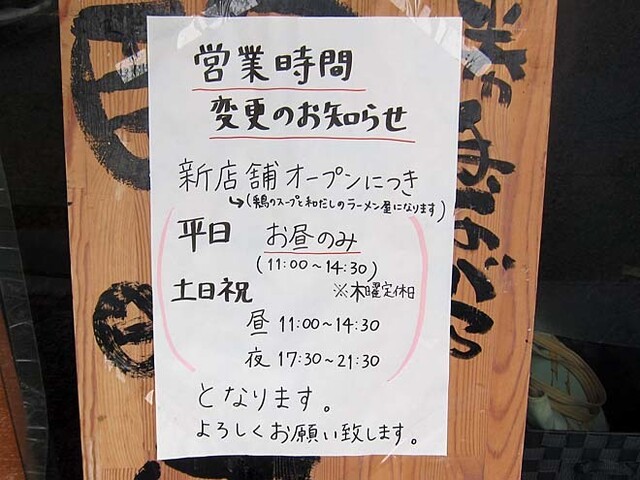 営業時間
変更のお知らせ
新店舗オープンにつき
↳(鶏のスープと和だしのラーメン屋になります)
平日 お昼のみ
(11:00～14:30)
土日祝 ※木曜定休日
昼 11:00～14:30
夜 17:30～21:30
となります。
よろしくお願い致します。